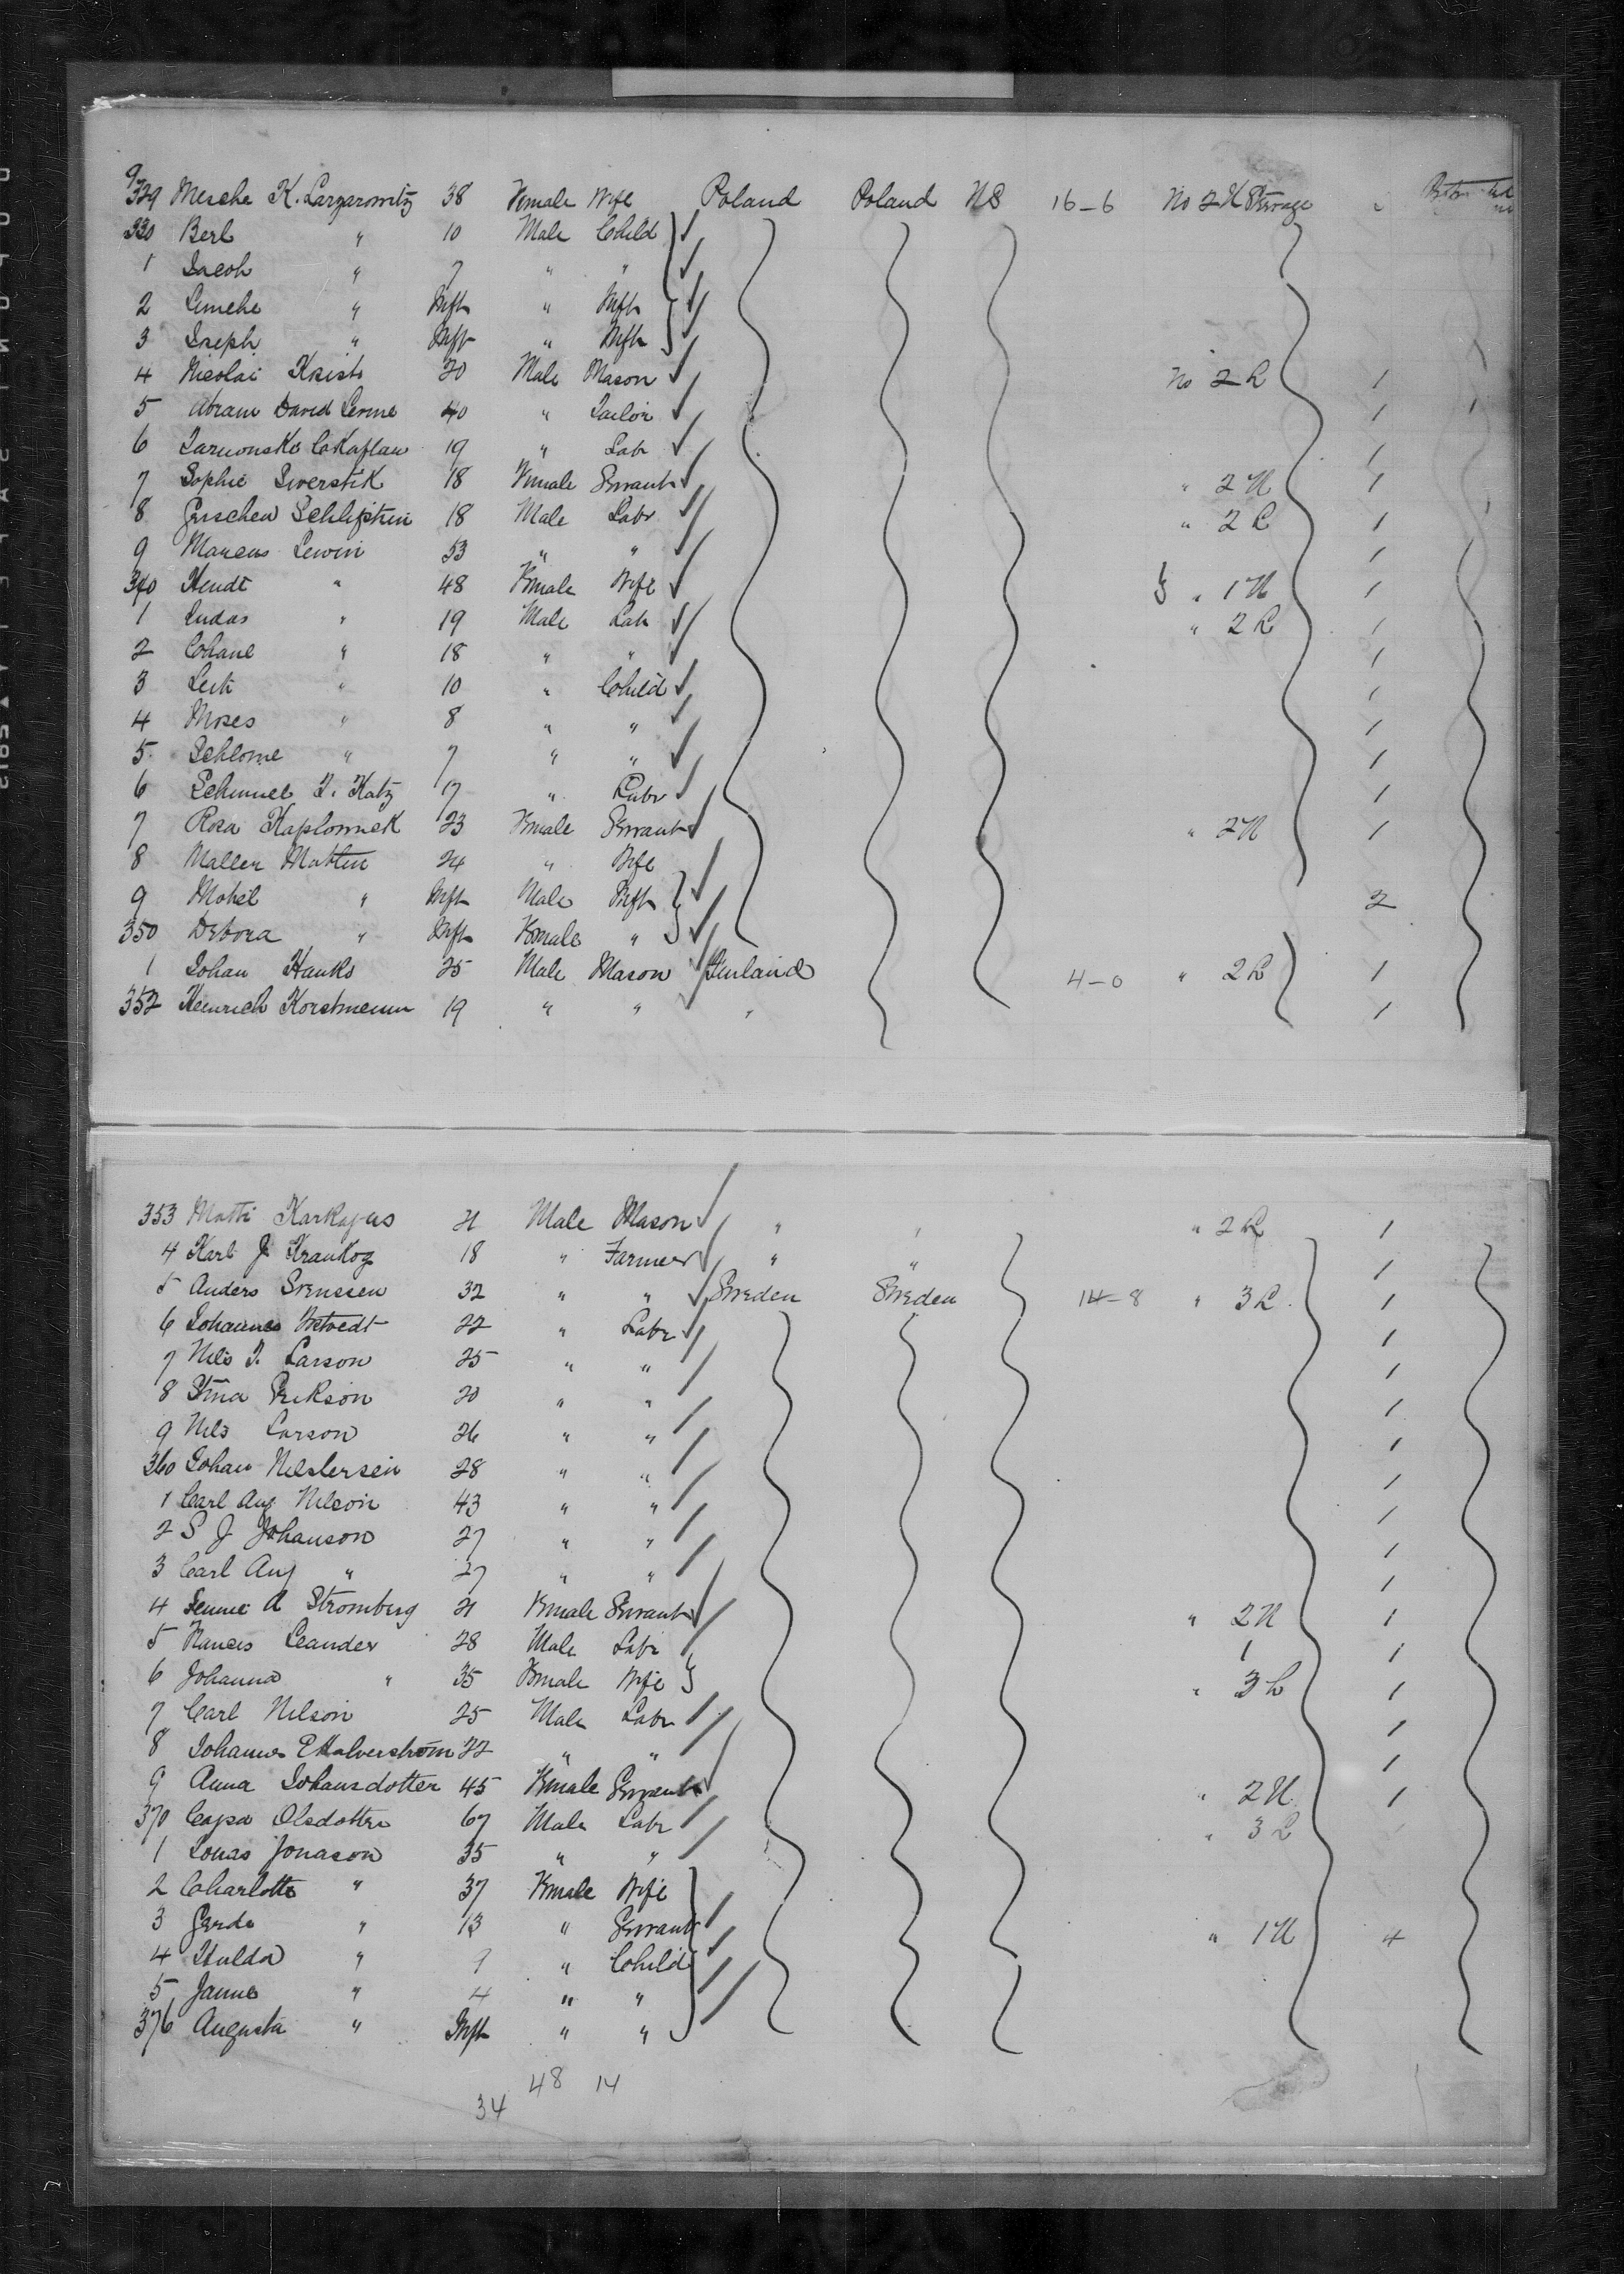 329 Mesche K. Lazarowitz 38 Female Wife Poland Poland NS 16-6 No 2 H Steerage
330 Berl " 10 Male Child
1 Jacob " 7 " "
2 Simche " Inft " Inft
3 Joseph " Inft " Inft
4 Nicolai Krist 20 Male Mason No 2 L 1
5 Abram David Levine 40 " Tailor 1
6 19 " Labr 1
7 Sophie Swerstik 18 Female Servant " 2 H 1
8 18 Male Labr " 2 L 1
9 Marcus Lewin 53 " " 1
340 Hendt " 48 Female Wife " 1 H 1
1 Judas " 19 Male Labr " 2 L 1
2 Chane " 18 " " 1
3 Leib " 10 " Child 1
4 Moses " 8 " " 1
5 Schlome " 7 " " 1
6 Schmuel I. Katz 17 " Labr 1
7 Rosa Kaplownick 23 Female Servant " 2 H 1
8 24 " Wife
9 " Inft Male Inft 2
350 Debora " Inft Female "
1 Johan Hanks 25 Male Mason Finland 4-0 " 2 L 1
352 Heinrich 19 " " " 1
353 Matti 21 Male Mason " " " 2 L 1
4 Karl J. 18 " Farmer " " 1
5 Anders Svenssen 32 " " Sweden Sweden 14-8 " 3 L 1
6 Johannes 22 " Labr 1
7 Nils I. Larson 25 " " 1
8 Stina Erikson 20 " " 1
9 Nils Larson 26 " " 1
360 Johan 28 " " 1
1 Carl Aug Nilson 43 " " 1
2 S J Johanson 27 " " 1
3 Carl Aug " 27 " " 1
4 A Stromberg 21 Female Servant " 2 H 1
5 Leander 28 Male Labr 1 1
6 Johanna " 35 Female Wife " 3 L 1
7 Carl Nilson 25 Male Labr 1
8 Johannes 22 " " 1
9 Anna Johansdotter 45 Female Servant " 2 H 1
370 Cajsa Olsdotter 67 Male Labr " 3 L
1 Jonas Jonason 35 " "
2 Charlotte " 37 Female Wife
3 Gerda " 13 " Servant " 1 H 4
4 Hulda " 9 " Child
5 Janne " 4 " "
376 Augusta " Inft " "
48 14
34